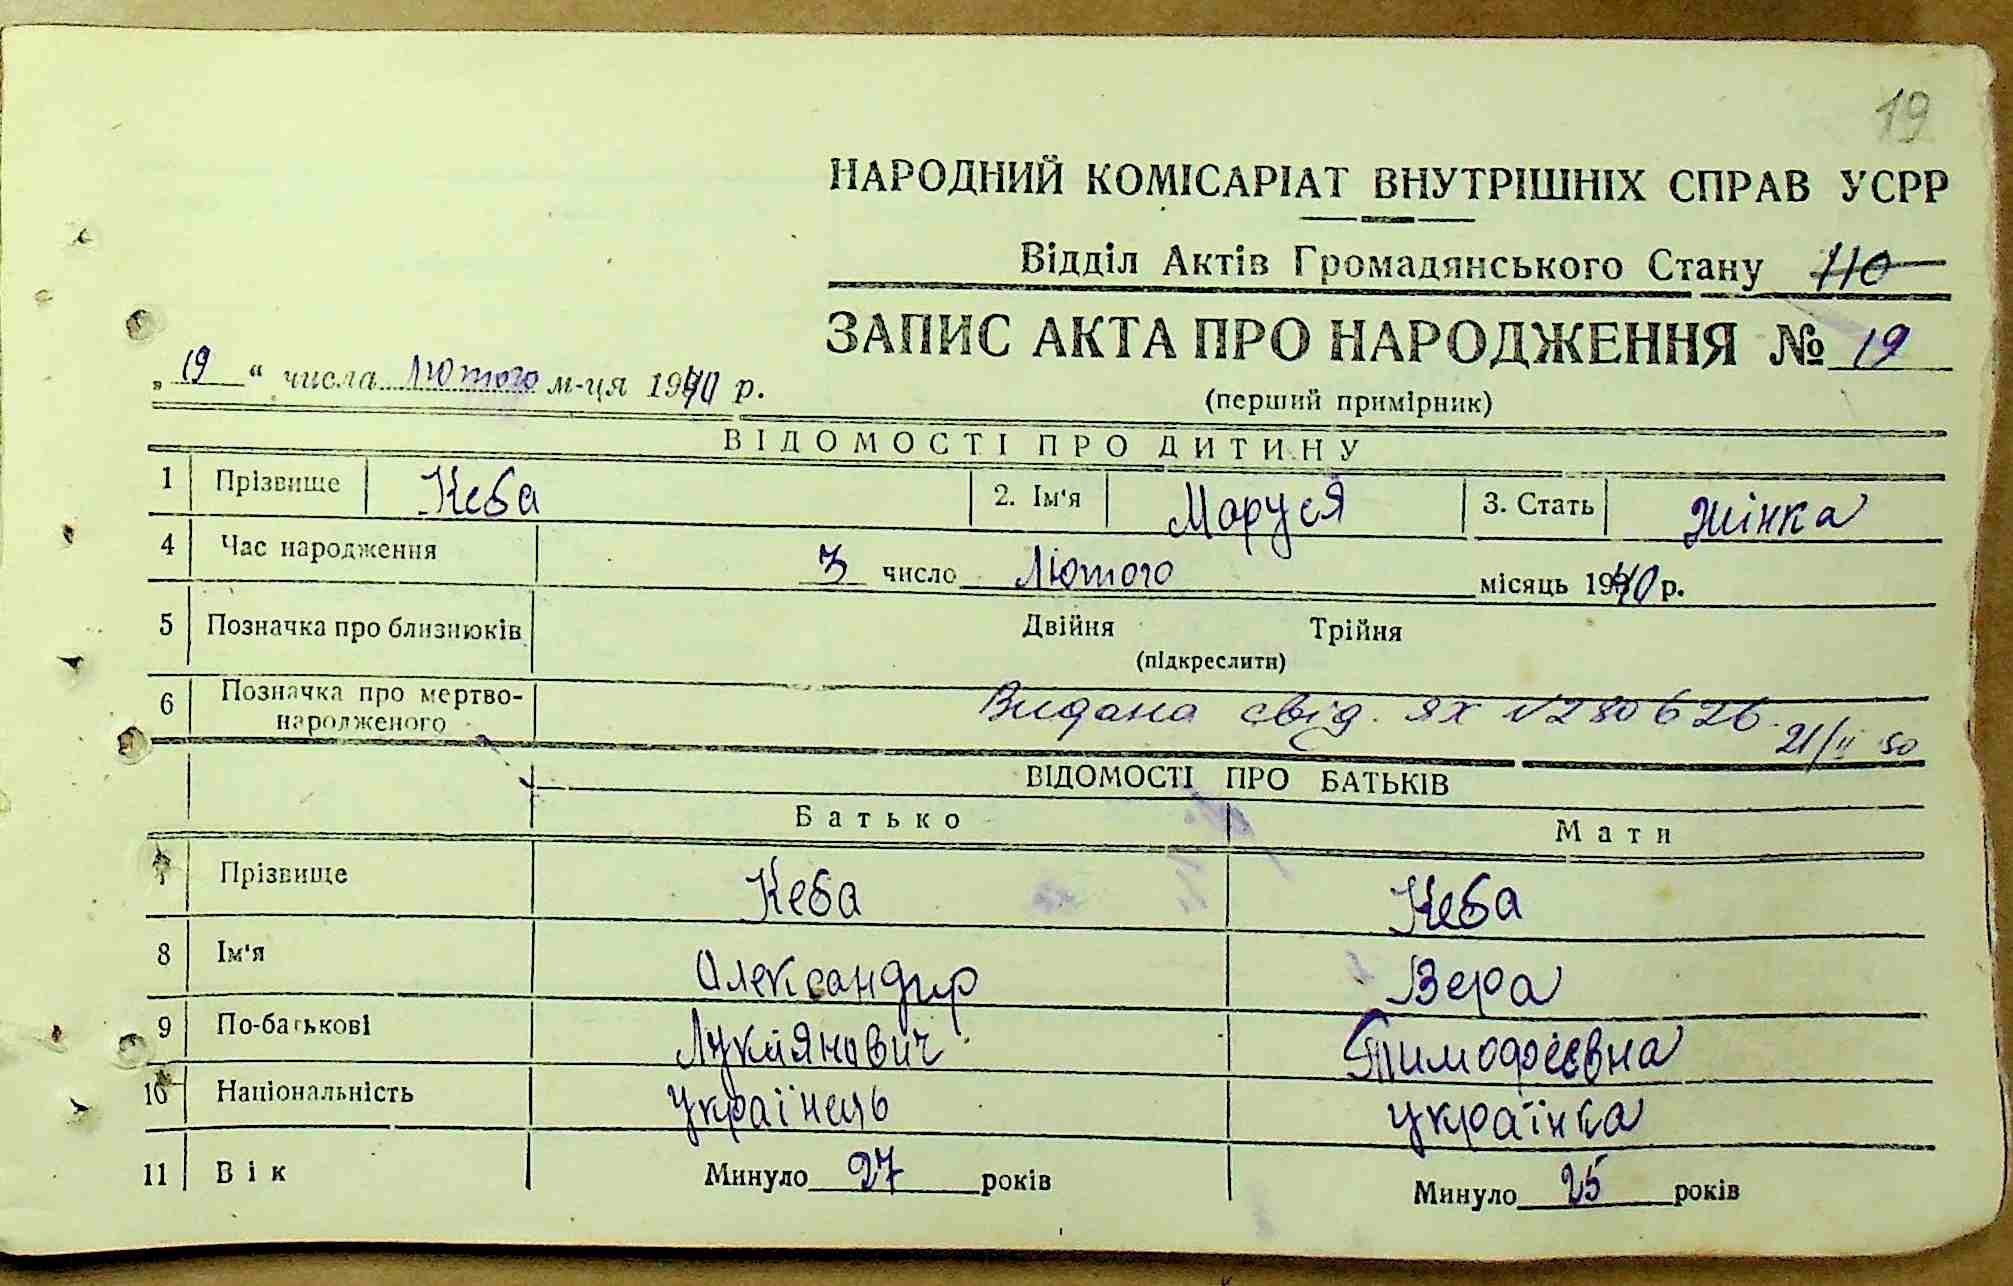 19
НАРОДНИЙ КОМІСАРІАТ ВНУТРІШНІХ СПРАВ УСРР
Відділ Актів Громадянського Стану 110
ЗАПИС АКТА ПРО НАРОДЖЕННЯ № 19
„19“ числа Лютого м-ця 1940 р.
(перший примірник)
ВІДОМОСТІ ПРО ДИТИНУ
1 Прізвище Кеба 2. Ім'я Маруся 3. Стать жінка
4 Час народження 3 число Лютого місяць 1940 р.
5 Позначка про близнюків Двійня Трійня
(підкреслити)
6 Позначка про мертво-
народженого
Видана свід. ЯХ №280626
21/II 50
ВІДОМОСТІ ПРО БАТЬКІВ
Батько Мати
7 Прізвище Кеба Кеба
8 Ім'я Олександир Вера
9 По-батькові Лукіянович Тимофеєвна
10 Національність Українець Українка
11 Вік Минуло 27 років Минуло 25 років